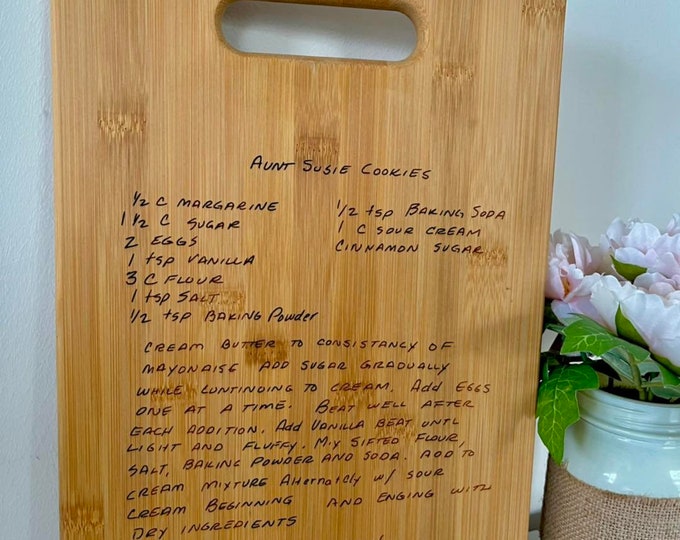 AUNT SUSIE COOKIES
1/2 C MARGARINE
1 1/2 C SUGAR
2 EGGS
1 tsp VANILLA
3 C FLOUR
1 tsp SALT
1/2 tsp BAKING Powder
1/2 tsp BAKING SODA
1 C SOUR CREAM
CINNAMON SUGAR
CREAM BUTTER TO CONSISTANCY OF
MAYONAISE ADD SUGAR GRADUALLY
WHILE CONTINDING TO CREAM. Add EGGS
ONE AT A TIME. BEAT WELL AFTER
EACH ADDITION. Add VANILLA BEAT UNTIL
LIGHT AND FLUFFY. MIX SIFTED FLOUR,
SALT, BAKING POWDER AND SODA. ADD TO
CREAM MIXTURE AlternatEly w/ SOUR
CREAM BEGINNING AND ENGING WITH
DRY INGREDIENTS